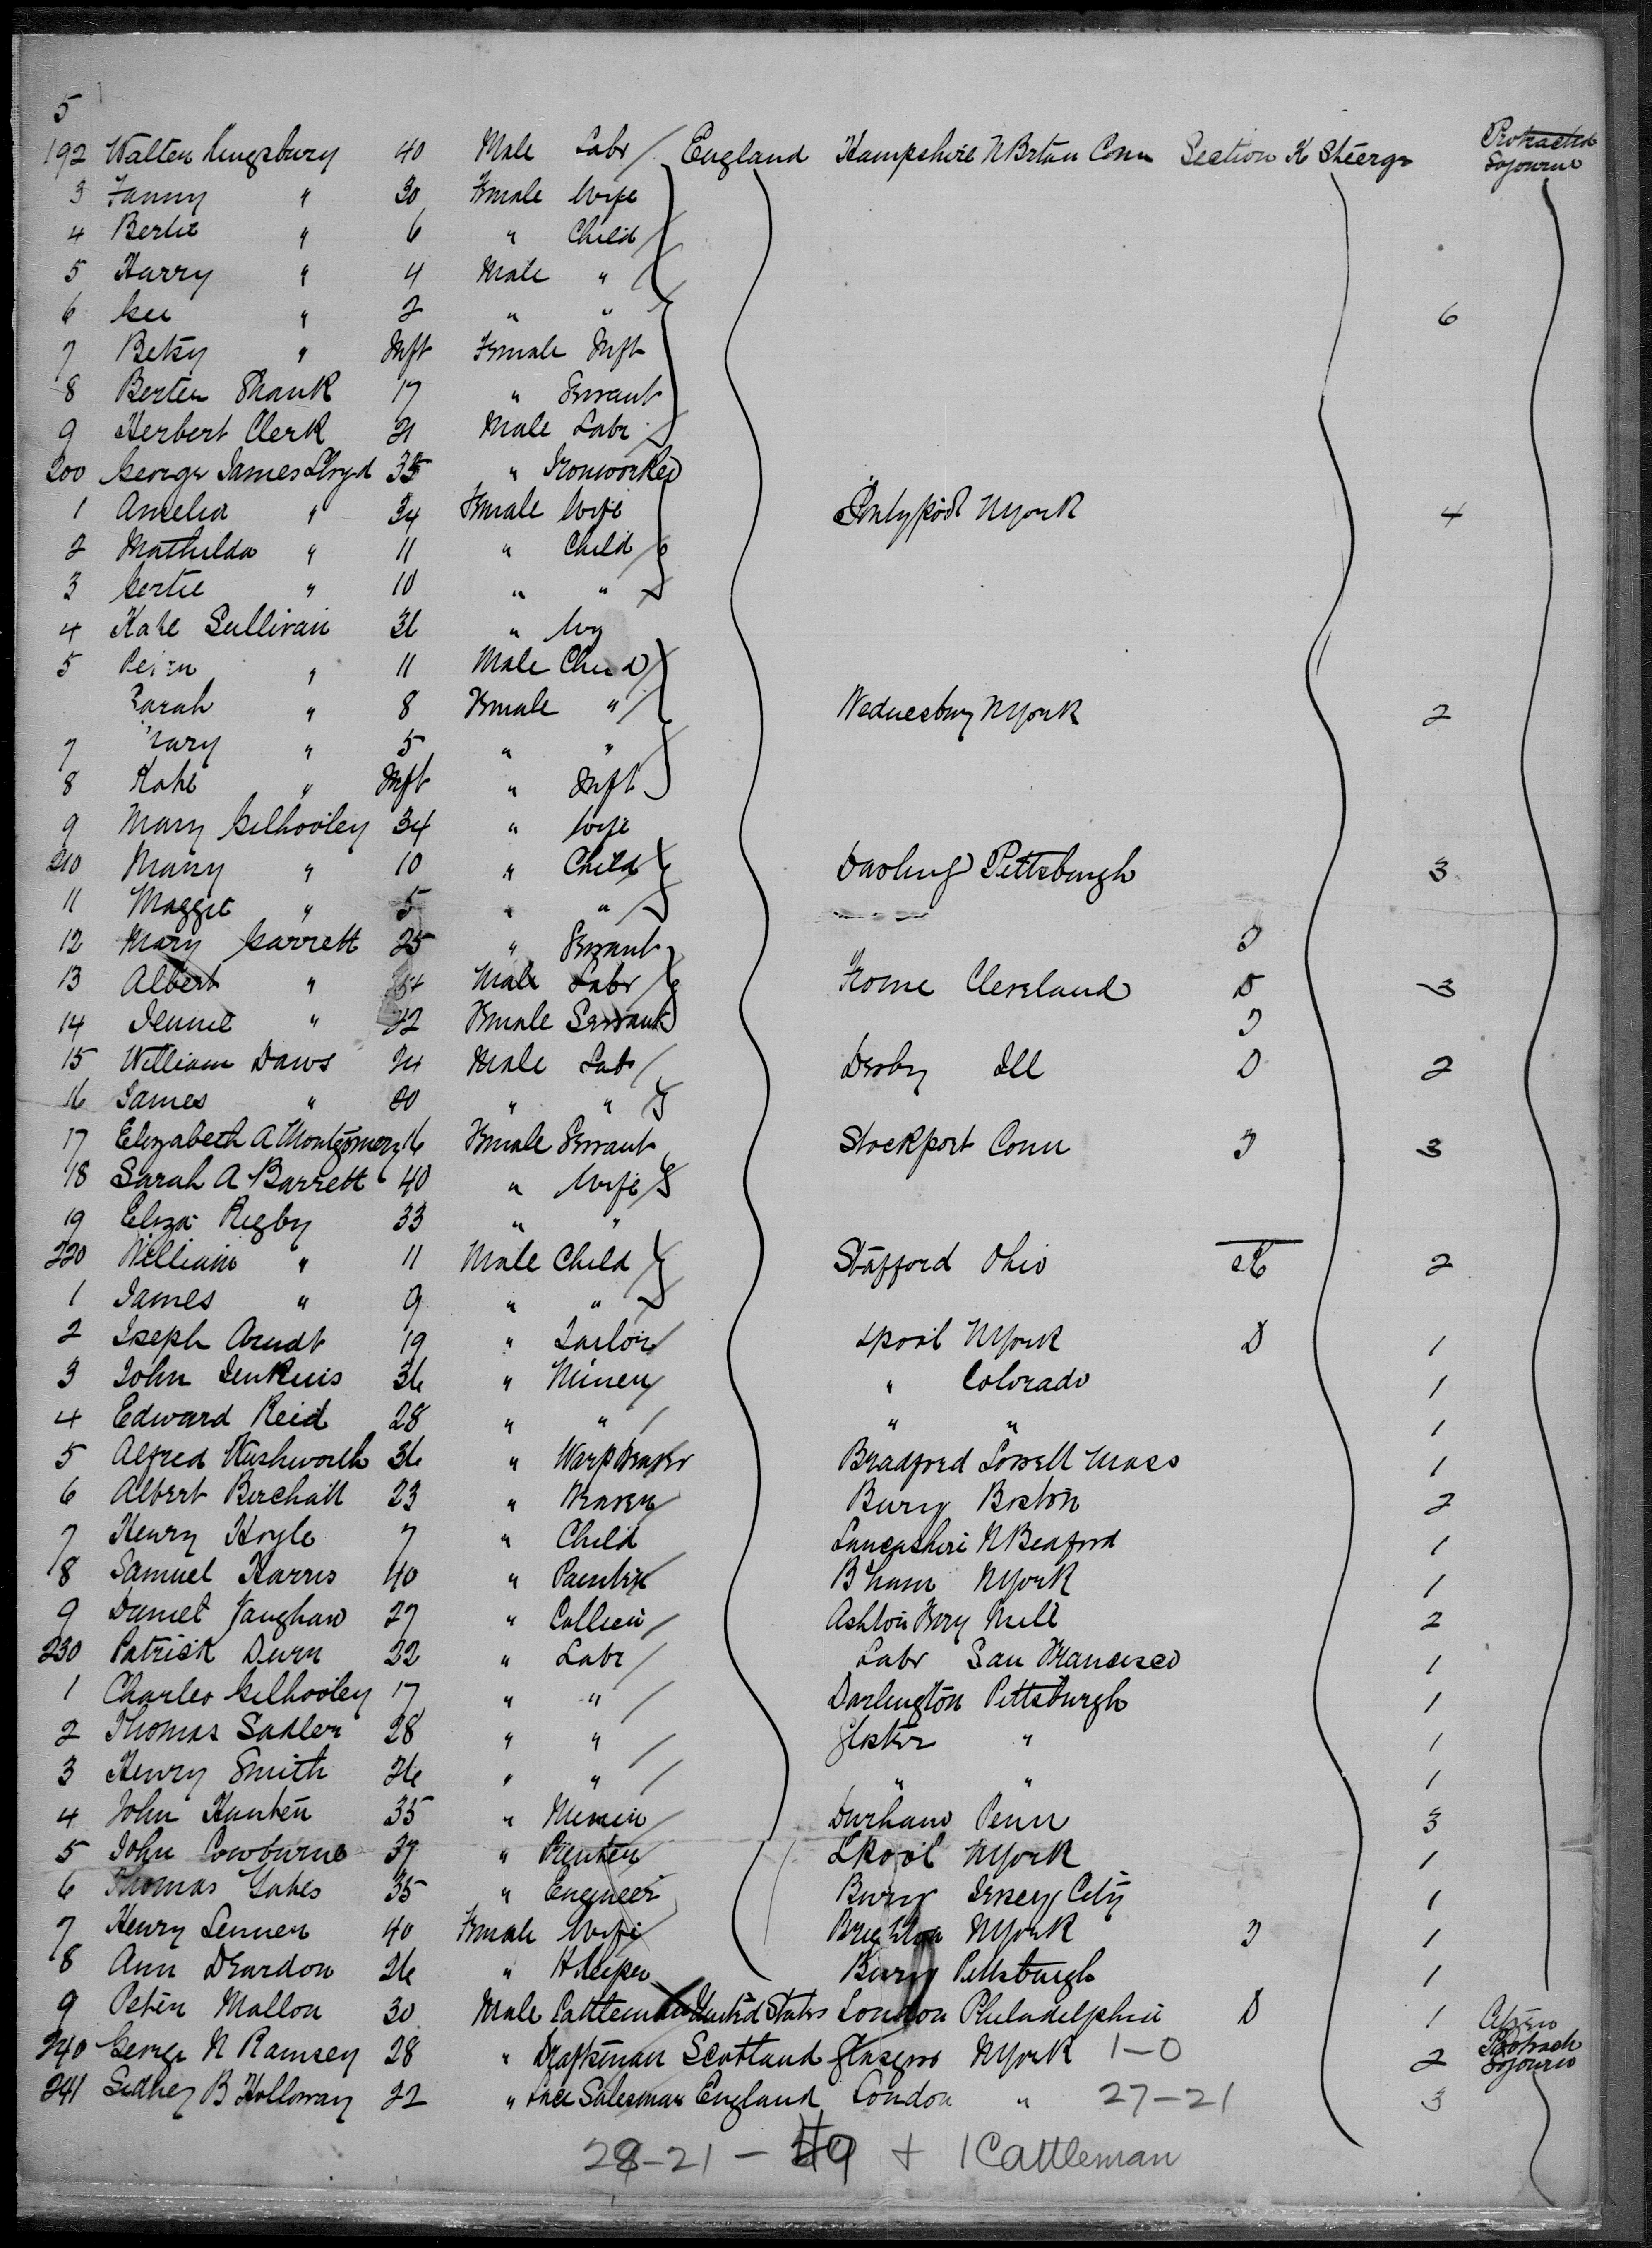 5
192 Walter Kingsbury 40 Male Labr England Hampshire N Brtan Conn Section K Steerge Protracted Sojourn
3 Fanny " 30 Female Wife
4 Bertie " 6 " Child
5 Harry " 4 Male "
6 Geo " 2 " " 6
7 Betsy " Inft Female Inft
8 Shank 17 " Servant
9 Herbert Clerk 21 Male Labr
200 George James Lloyd 35 " Ironworker
1 Amelia " 34 Female Wife Pontypool NYork 4
2 Mathilda " 11 " Child
3 Gertie " 10 " "
4 Kate Sullivan 36 "
5 " 11 Male Child
Sarah " 8 Female " Wednesbury NYork 2
7 Mary " 5 " "
8 Kate " Inft " Inft
9 Mary Gilhooley 34 " Wife
210 Mary " 10 " Child Darling Pittsburgh 3
11 Maggie " 5 " "
12 Mary Garrett 25 " Servant
13 Albert " Male Labr Frome Cleveland D 3
14 Jennie " 22 Female Servant
15 William Daws 24 Male Labr Derby Ill D 2
16 James " 20 " "
17 Elizabeth A Montgomery 16 Female Servant Stockport Conn 3
18 Sarah A Barrett 40 " Wife
19 Eliza Rigby 33 " "
220 William " 11 Male Child Stafford Ohio 2
1 James " 9 " "
2 Joseph Arndt 19 " Tailor Lpool NYork D 1
3 John Jenkins 36 " Miner " Colorado 1
4 Edward Reid 28 " " " " 1
5 Alfred Rushworth 36 " Warp Bradford Lowell Mass 1
6 Albert Birchall 23 " Weaver Bury Boston 2
7 Henry Hoyle 7 " Child Lancashire N Bedford 1
8 Samuel Harris 40 " Painter B'ham NYork 1
9 Daniel Vaughan 27 " Collier Ashton 2
230 Patrick Durn 22 " Labr Labr San Francisco 1
1 Charles Gilhooley 17 " " Darlington Pittsburgh 1
2 Thomas Sadler 28 " " Gloster " 1
3 Henry Smith 26 " " " " 1
4 John Hunter 35 " Miner Durham Penn 3
5 John Cowburne 37 " Lpool NYork 1
6 Thomas Yates 35 " Engineer Bury Jersey City 1
7 Henry Lenner 40 Female Wife Brighton NYork 1
8 Ann Deardon 26 " HKeeper Bury Pittsburgh 1
9 Peter Mallon 30 Male Cattleman United States London Philadelphia D 1
240 George N Ramsey 28 " Draftsman Scotland Glasgow NYork 1-0 2 Protract Sojourn
241 Sidney B Holloway 22 " Lace Salesman England London " 27-21 3
28-21 - 49 + 1 Cattleman